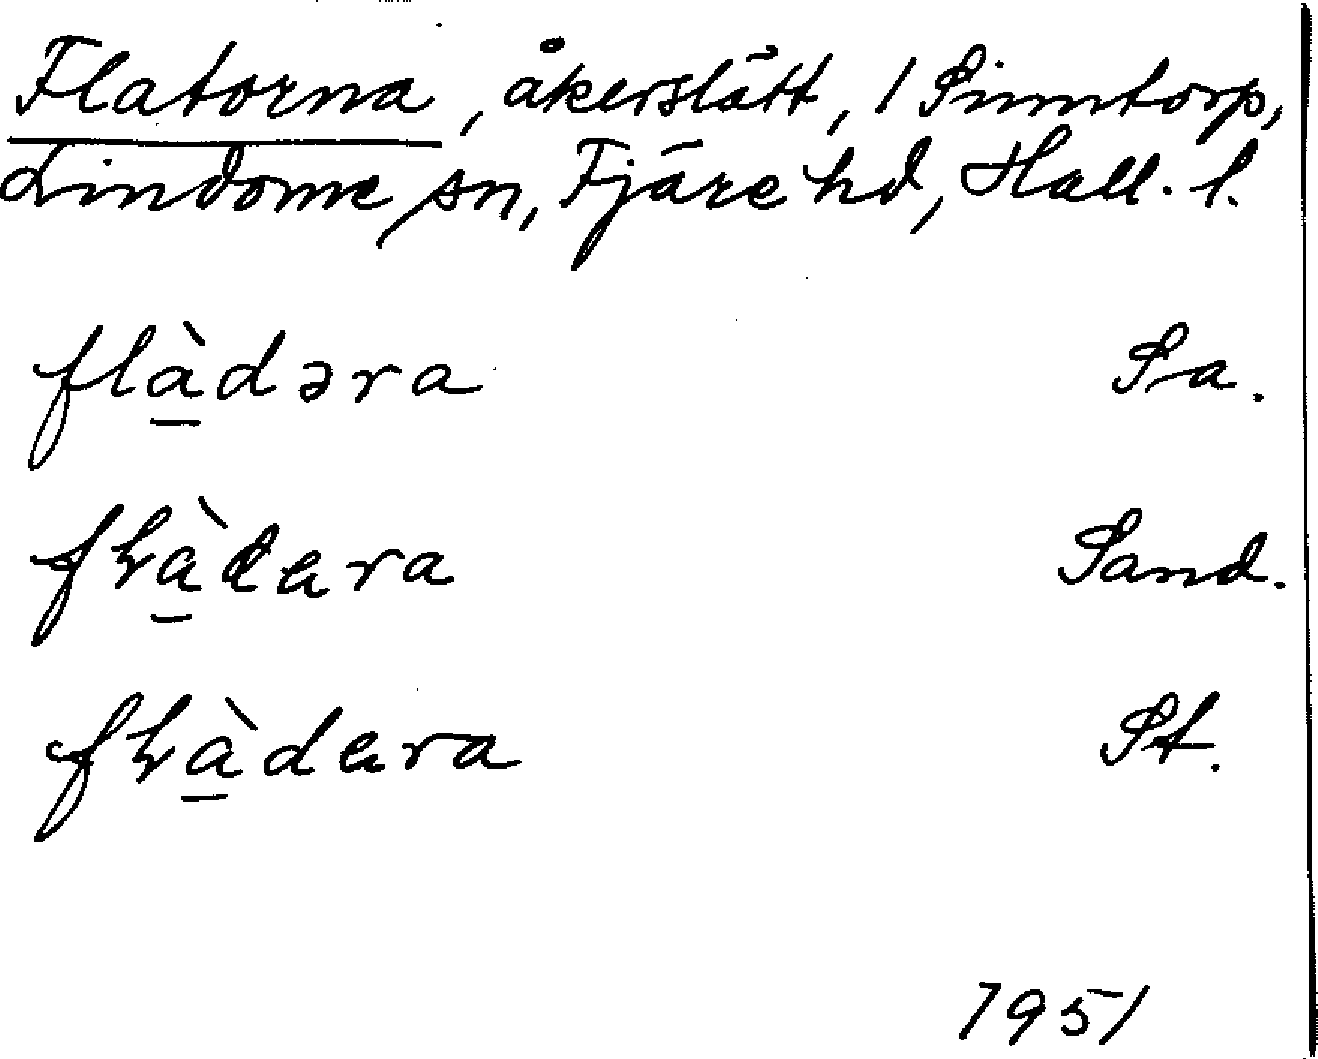 Flatorna, åkerslätt, 1 Sinntorp,
Lindome sn, Fjäre hd, Hall. l.
flàdəra Sa.
Sand.
St.
1951